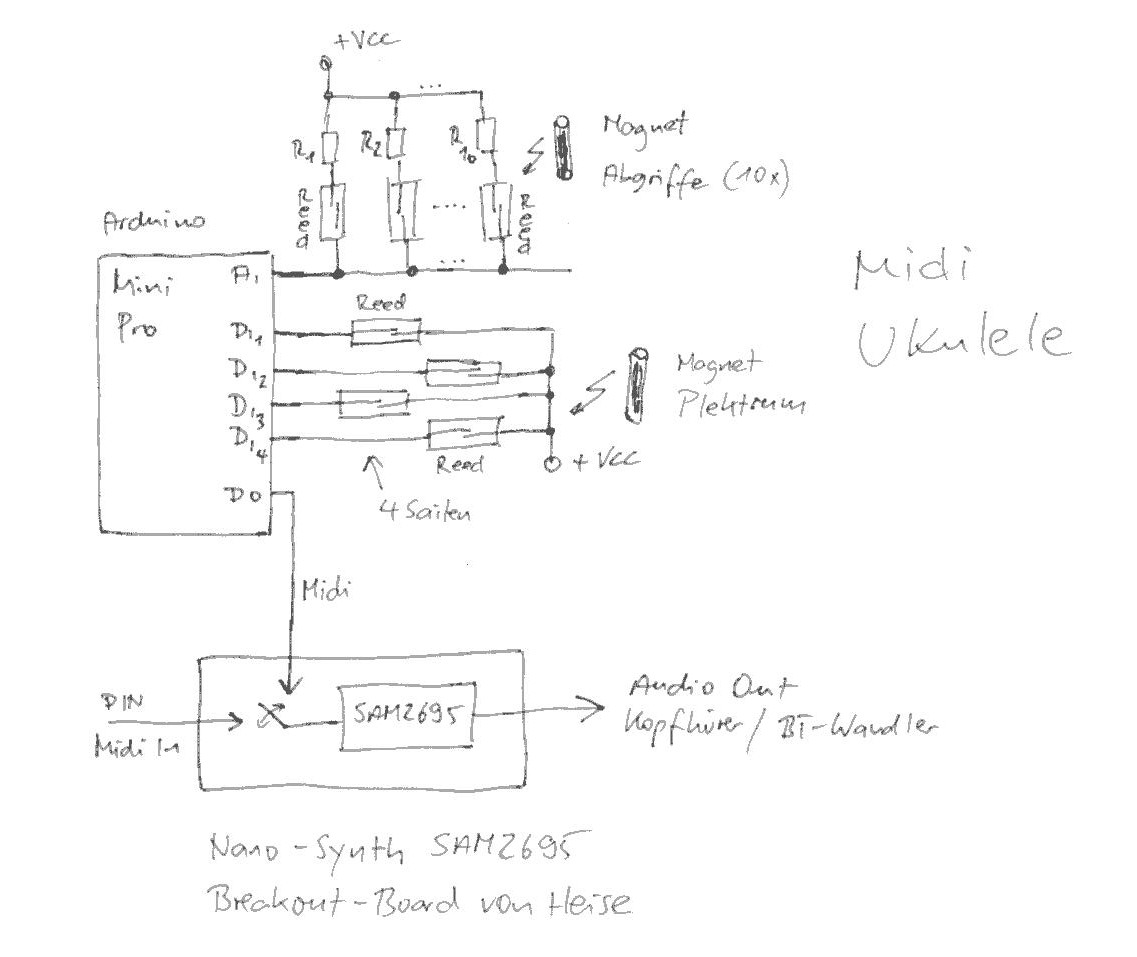 +Vcc
...
R1
R2
R10
Magnet
Abgriffe (10x)
Reed
....
Reed
Arduino
Mini
Pro
A1
...
Midi
Ukulele
Reed
Di1
Di2
Di3
Di4
Magnet
Plektrum
Reed
+ Vcc
4 Saiten
Do
Midi
DIN
Midi In
SAM2695
Audio Out
Kopfhörer / BT-Wandler
Nano-Synth SAM2695
Breakout-Board von Heise